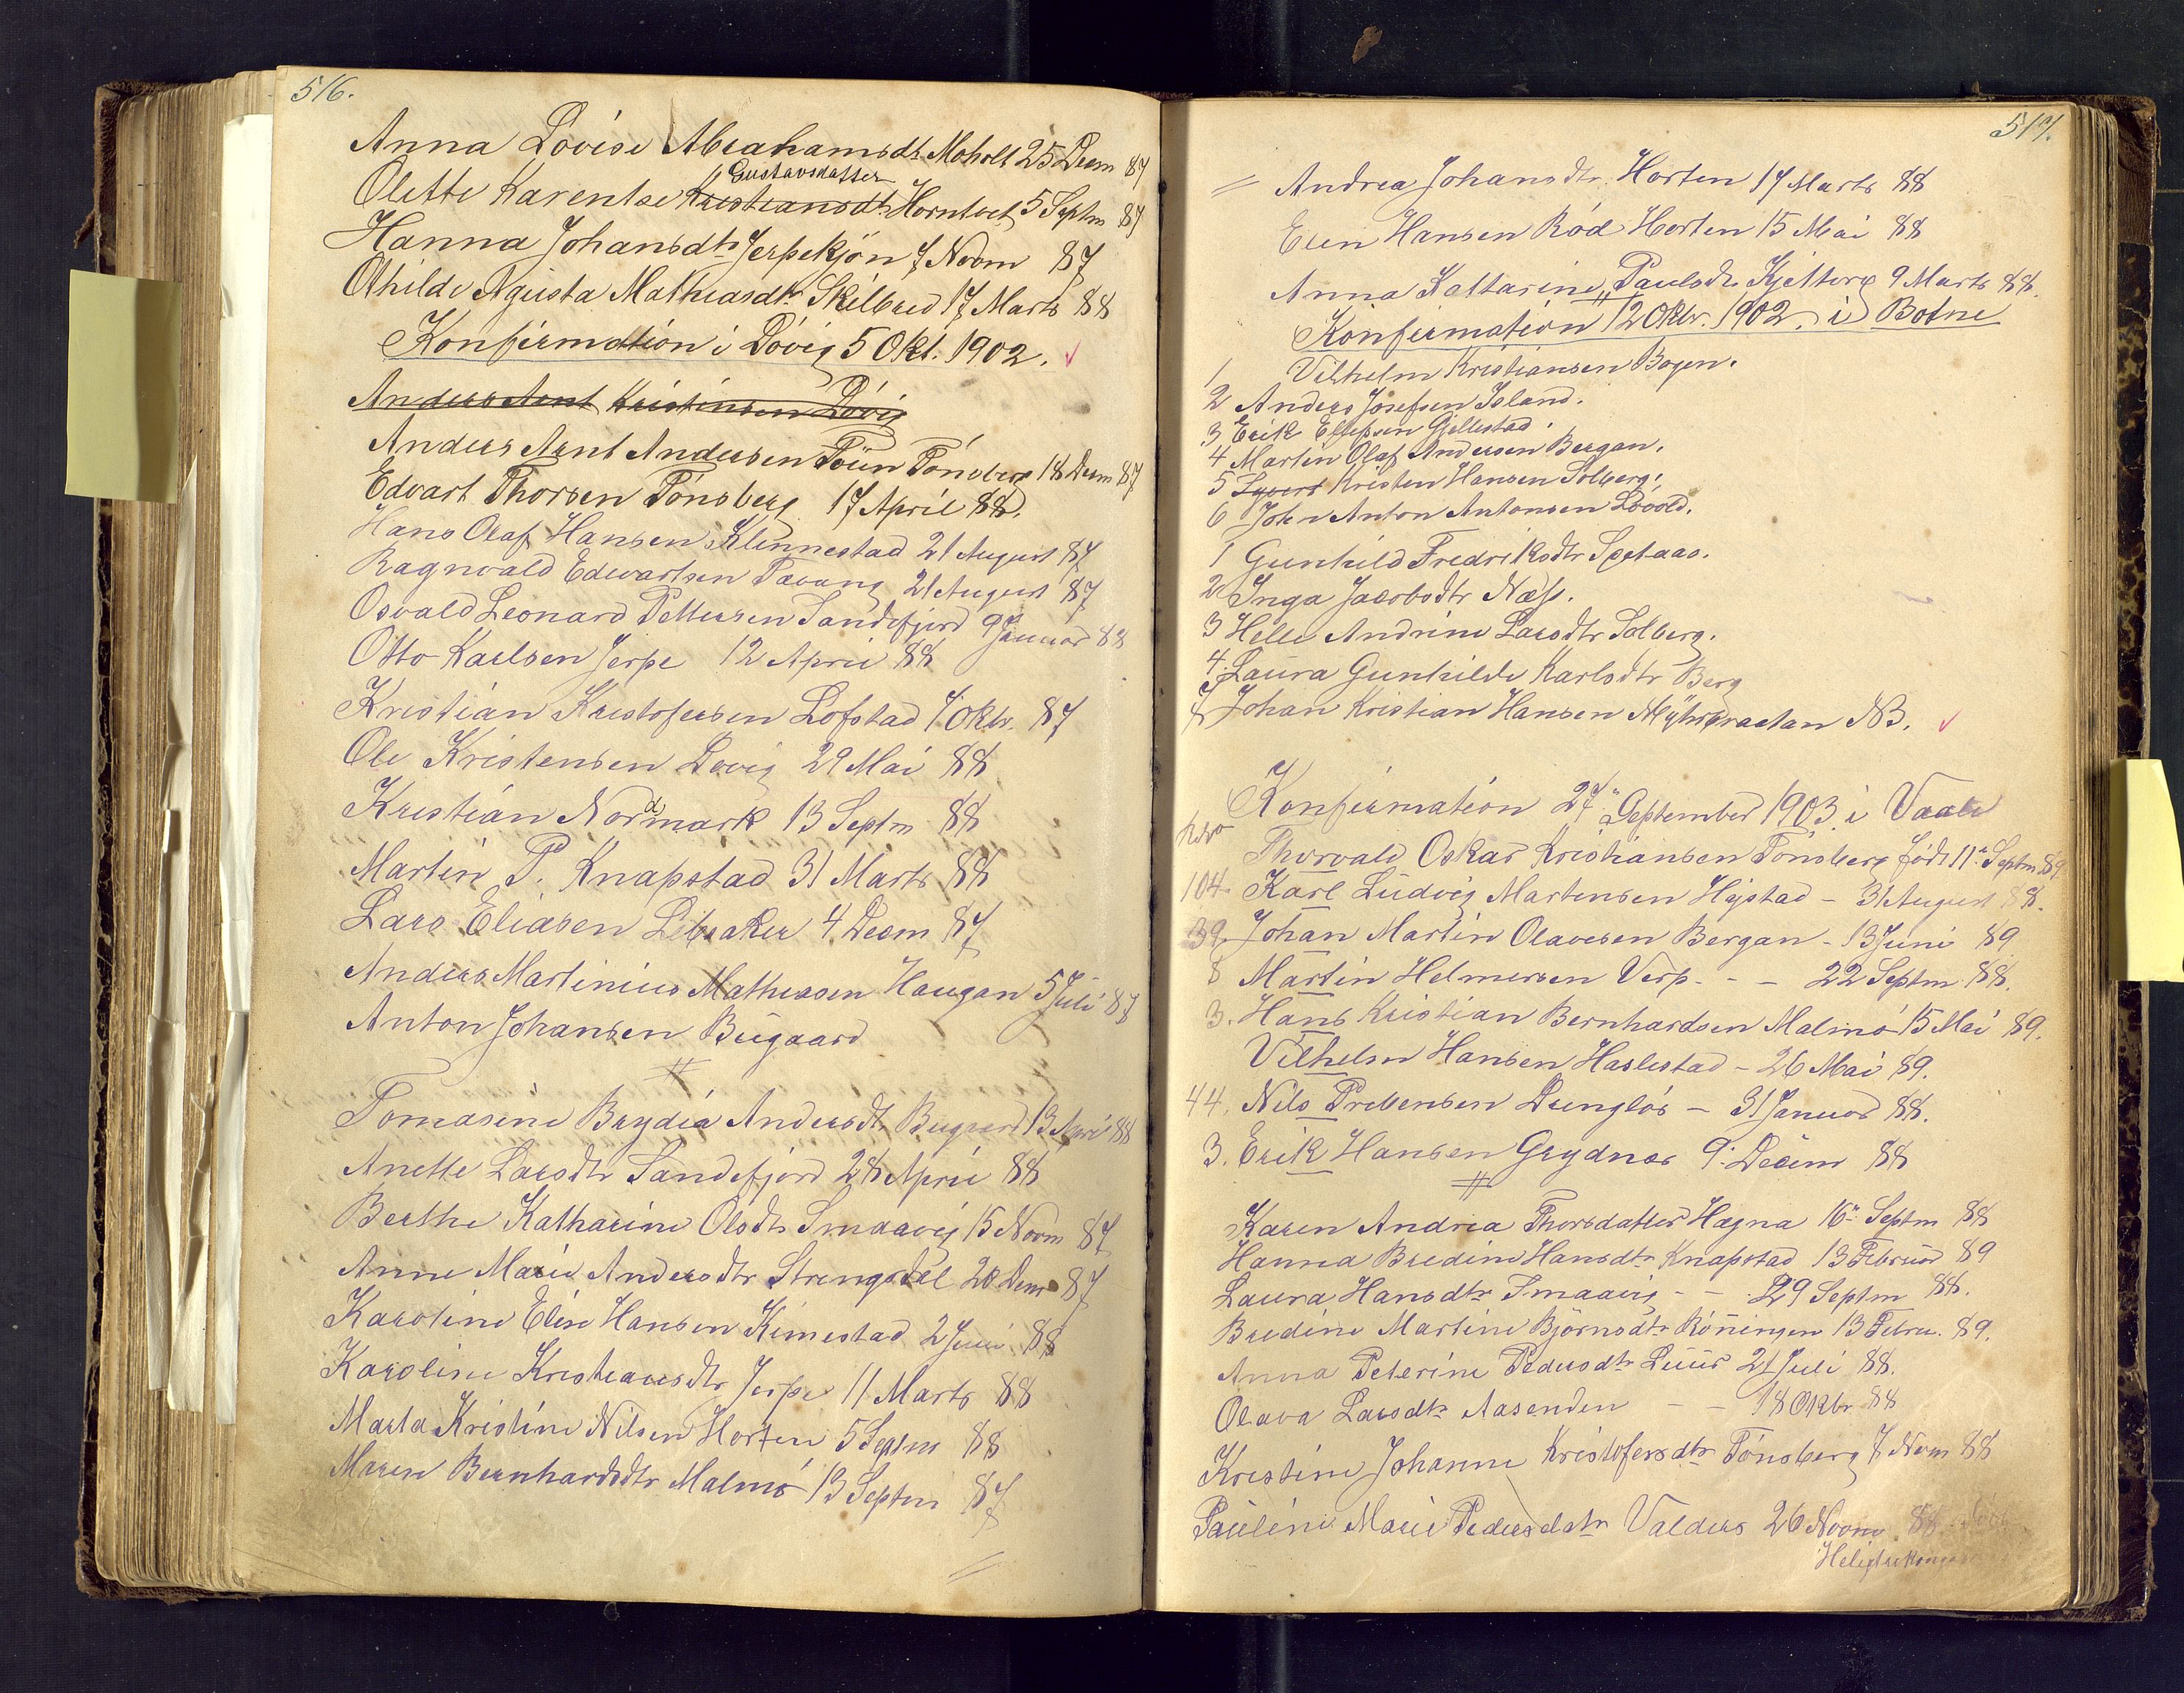 516.
Anna Lovise Abrahamsdt. Moholt 25 Decm 87
Gustavsdatter
Olette Karentse Kristiansdt. Horntvet 5 Septm 87
Hanna Johansdtr Jerpekjön 7 Novm 87
Othilde Agusta Mathiasdtr Skilbred 17 Marts 88
Konfirmation i Døvig 5 Okt. 1902.
Anders Arnt Kristinsen Døvig
Anders Arnt Andersen Tönsberg 18 Decm 87
Edvart Thorsen Tönsberg 17 April 88.
Hans Olaf Hansen Klinnestad 21 August 87
Ragnvald Edvartsen Tavang 21 August 87
Osvald Leonard Pettersen Sandefjord 9 Januar 88
Otto Karlsen Jerpe 12 April 88
Kristian Kristofersen Lofstad 7 Oktr. 87
Ole Kristensen Døvig 29 Mai 88
Kristian Nordmark 13 Septm 88
Martin P. Knapstad 31 Marts 88
Lars Eliasen Libraker 4 Decm 87
Anders Martinius Mathiasen Haugan 5 Juli 87
Anton Johansen Bugaard
Tomasine Brydia Andersdtr Bugaard 13 April 88
Anette Larsdtr Sandefjord 28 April 88
Berthe Katharine Olsdtr Smaavig 15 Novm 87
Anne Marie Andersdtr Strengsdal 20 Decm 87
Karoline Elise Hansen Kimestad 2 Juni 88
Karoline Kristiansdtr Jerpe 11 Marts 88
Marta Kristine Nilsen Horten 5 Septm 88
Maren Bernhardsdtr Malmö 13 Septm 87
517.
Andrea Johansdtr. Horten 17 Marts 88
Elen Hansen Röd Horten 15 Mai 88
Anna Kattarine Paulsdtr. Kjelterg 9 Marts 88.
Konfirmation 12 Oktr. 1902. i Botne
1 Vilhelm Kristiansen Bogen.
2 Anders Josefsen Island.
3 Erik Ellefsen Gjellestad.
4 Martin Olaf Andersen Bergan.
5 Syvert Kristen Hansen Solberg.
6 John Anton Antonsen Lövold.
1 Gunhild Fredriksdtr Seetaas.
2 Inga Jacobsdtr Næss.
3 Helle Andrine Larsdtr Solberg.
4. Laura Gunhilde Karlsdtr Berg
7 Johan Kristian Hansen Myhrebraatan NB.
Konfirmation 27" September 1903 i Vaale
Thorvald Oskar Kristiansen Tönsberg födt 11te Septm 89
104. Karl Ludvig Martensen Hystad - 31 August 88.
39. Johan Martin Olavesen Bergan - 13 Juni 89
8 Martin Helmersen Verp. - - 22 Septm 88.
3. Hans Kristian Bernhardsen Malmö 15 Mai 89.
Vilhelm Hansen Haslestad - 26 Mai 89.
44. Nils Prebensen Drenglös - 31 Januar 88.
3. Erik Hansen Grydnes 9. Decim 88
Karen Andrea Thorsdatter Hægna 16" Septm 88
Hanna Bredine Hansdtr Knapstad 13 Februar 89
Laura Hansdtr Smaavig - - 29 Septm 88.
Bredine Martine Björnsdtr Rönningen 13 Febru. 89.
Anna Peterine Pedersdtr Luur 21 Juli 88.
Olava Larsdtr Aasenden - - 18 Oktbr 88
Kristine Johanne Kristofersdtr Tönsberg 7 Novm 88
Pauline Marie Pedersdatr Valders 26 Novm. 88